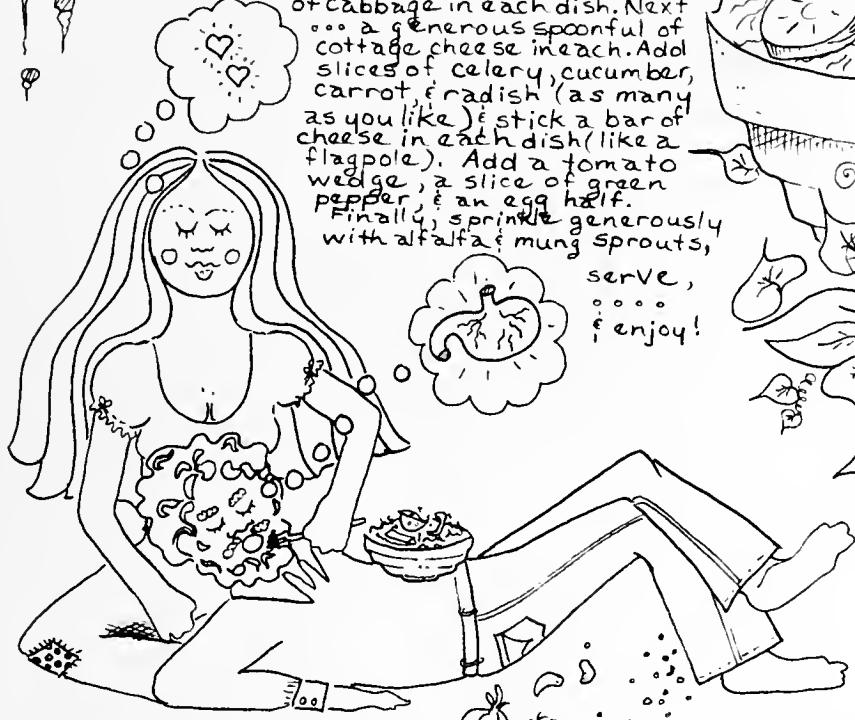 of cabbage in each dish. Next
... a generous spoonful of
cottage cheese in each. Add
slices of celery, cucumber,
carrot, & radish (as many
as you like) & stick a bar of
cheese in each dish (like a
flagpole). Add a tomato
wedge, a slice of green
pepper, & an egg half.
Finally, sprinkle generously
with alfalfa & mung sprouts,
serve,
....
& enjoy!